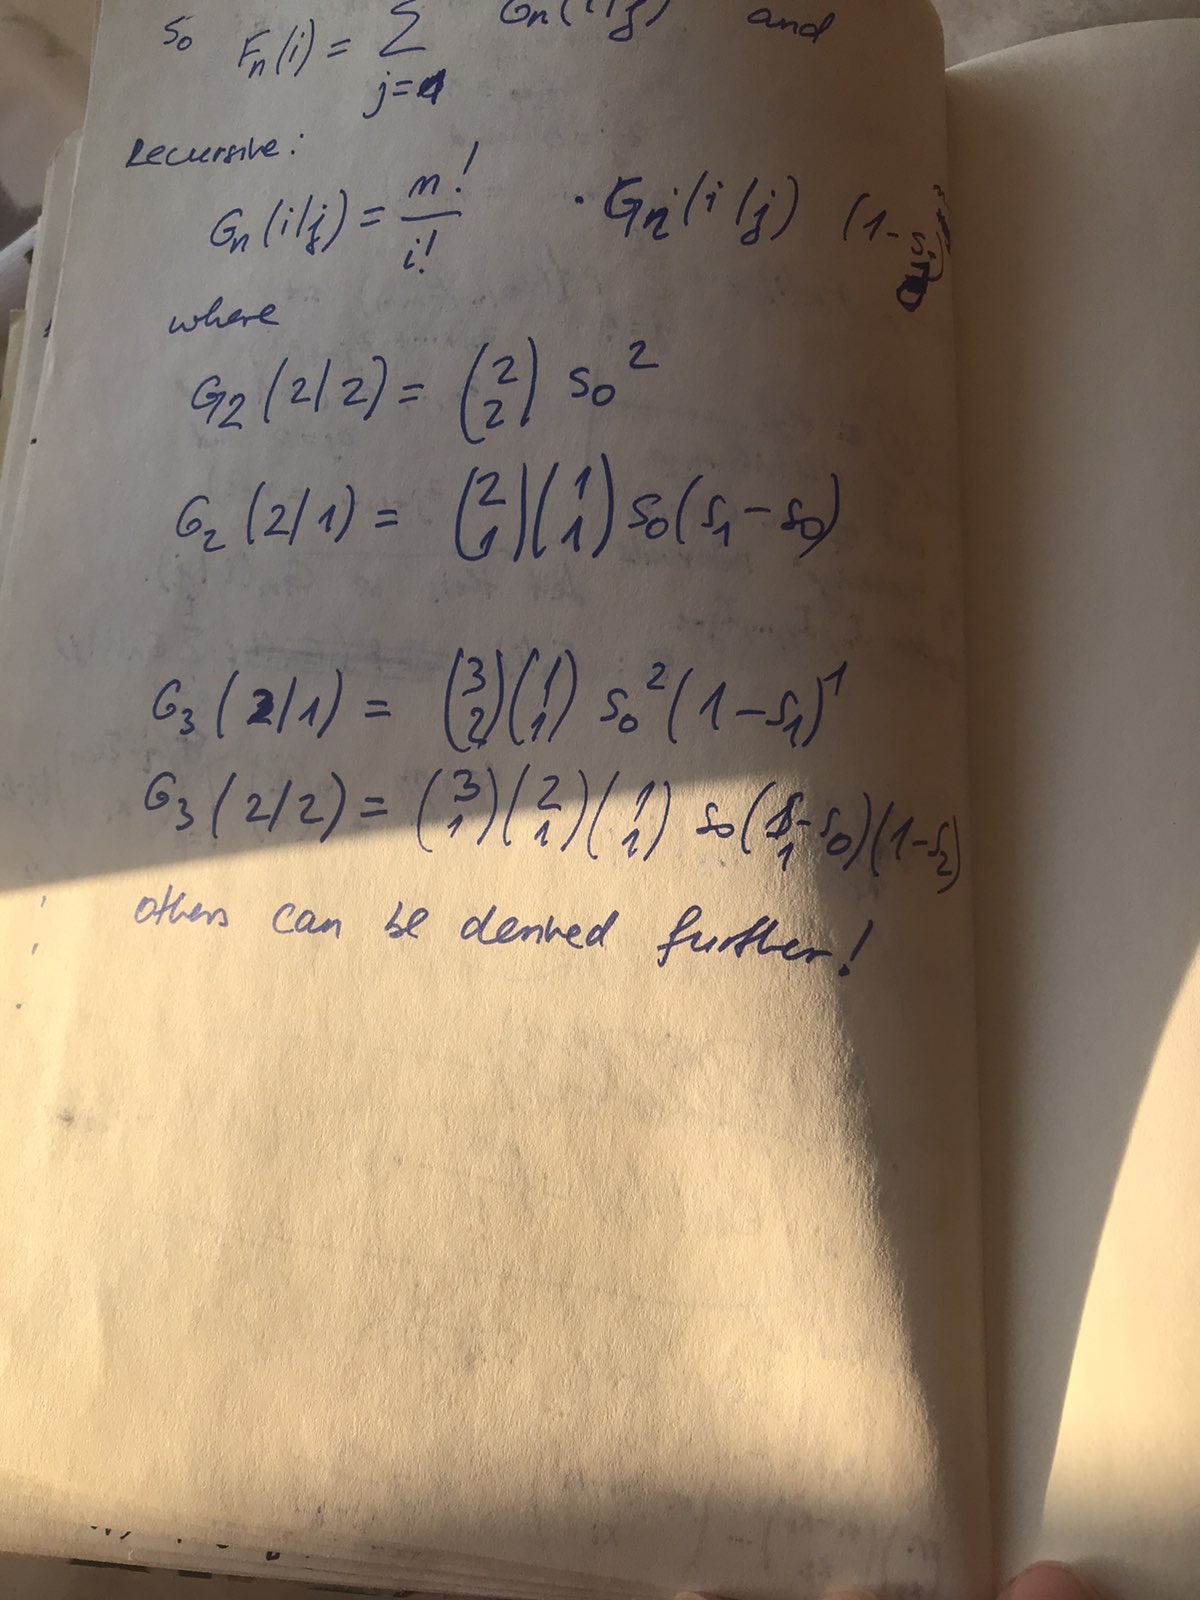 So Fn(i) = Σ Gn(i/j) and
j=1
Recursive:
Gn(i/j) = n!/i! · Gn(i/j) (1-s
where
G2(2/2) = (2 2) s0^2
G2(2/1) = (2 1)(1 1) s0(s1-s0)
G3(2/1) = (3 2)(1 1) s0^2(1-s1)^1
G3(2/2) = (3 1)(2 1)(1 1) s0(s1-s0)(1-s2)
others can be derived further!